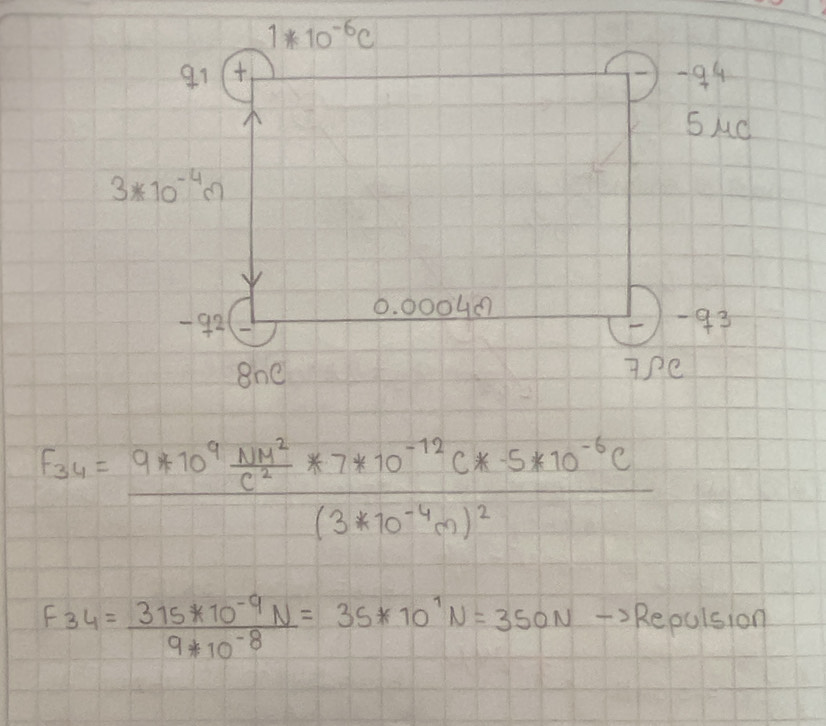 1*10⁻⁶C
q1 + - -q4
5 μC
3*10⁻⁴m
0.0004m
-q2 - - -q3
8nC 7PC
F34 = 9*10⁹ NM²/C² * 7*10⁻¹² C * -5*10⁻⁶C
(3*10⁻⁴m)²
F34 = 315*10⁻⁹ N = 35*10¹ N = 350N -> Repulsion
9*10⁻⁸